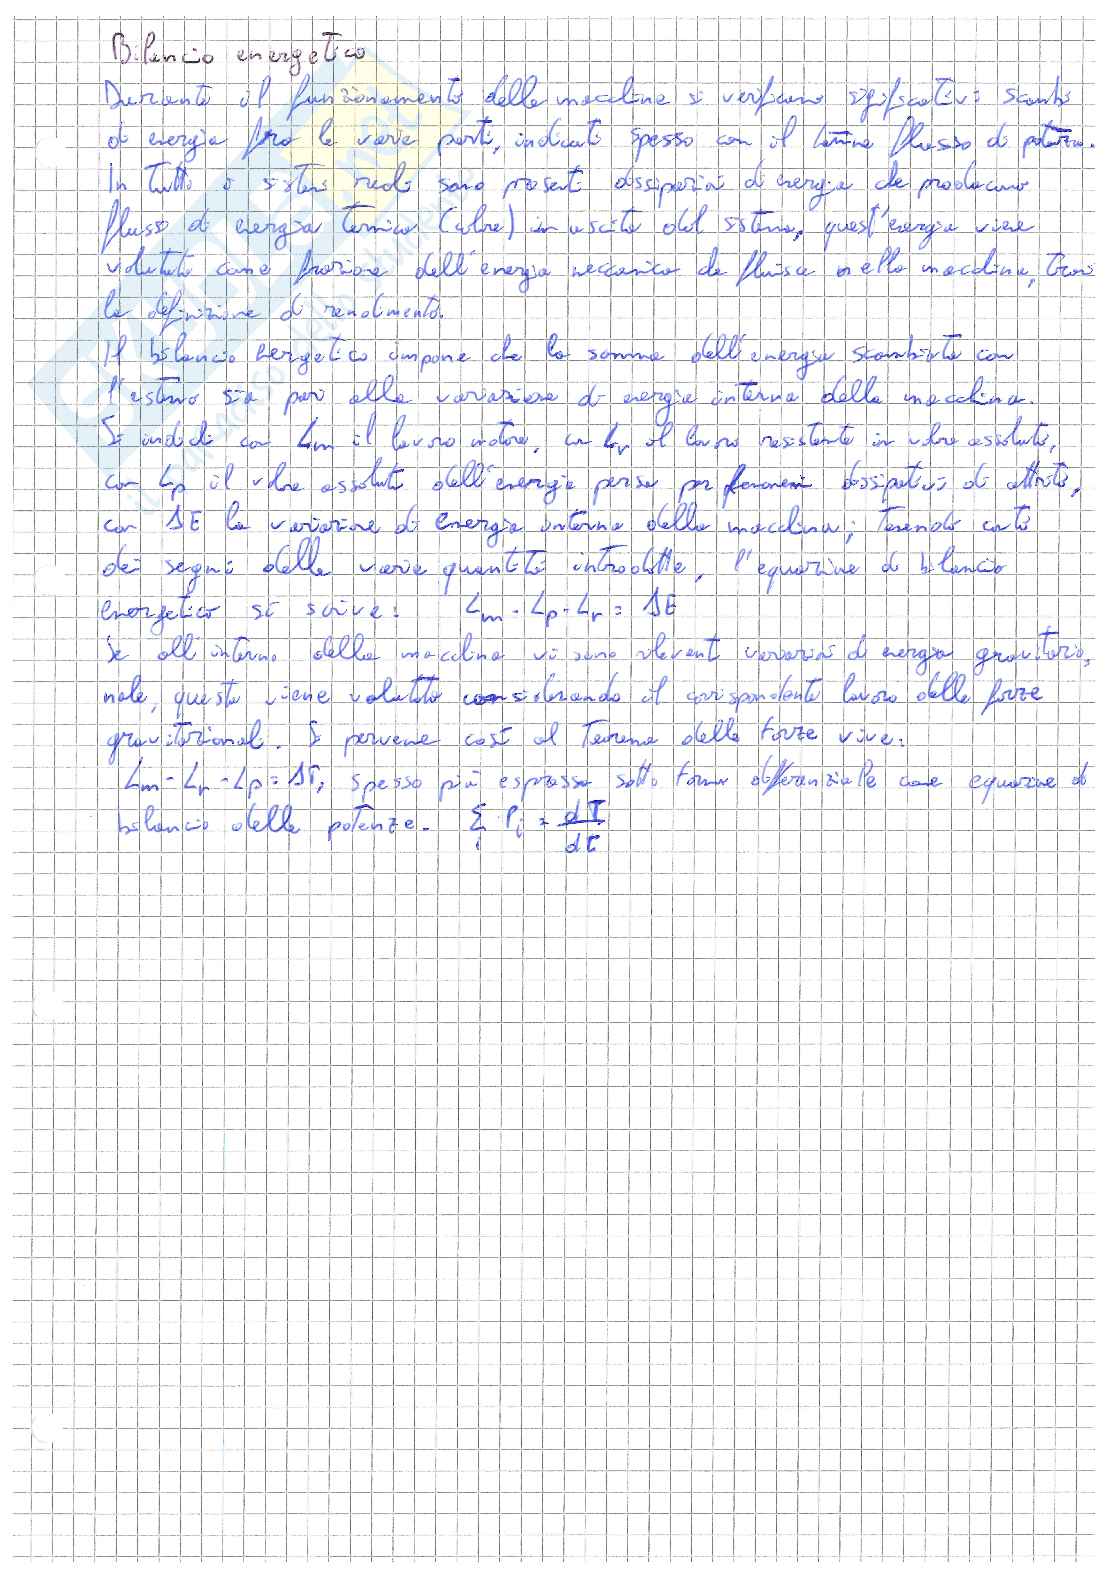 Bilancio energetico
Durante il funzionamento delle macchine si verificano significativi scambi
di energia fra le varie parti, indicati spesso con il termine flusso di potenza.
In tutti i sistemi reali sono presenti dissipazioni di energia che producono
flusso di energia termica (calore) in uscita dal sistema, quest'energia viene
valutata come frazione dell'energia meccanica che fluisce nella macchina,
la definizione di rendimento.
Il bilancio energetico impone che la somma dell'energia scambiata con
l'esterno sia pari alla variazione di energia interna della macchina.
Si indichi con Lm il lavoro motore, con Lr il lavoro resistente in valore assoluto,
con Lp il valore assoluto dell'energia persa per fenomeni dissipativi di attrito,
con ΔE la variazione di energia interna della macchina; tenendo conto
dei segni delle varie quantità introdotte, l'equazione di bilancio
energetico si scrive: Lm - Lp - Lr = ΔE
Se all'interno della macchina vi sono rilevanti variazioni di energia gravitazio,
nale, questa viene valutata considerando il corrispondente lavoro delle forze
gravitazionali. Si perviene così al Teorema delle forze vive:
Lm - Lr - Lp = ΔT, spesso più espresso sotto forma differenziale come equazione di
bilancio delle potenze. Σi Pi = dT/dt